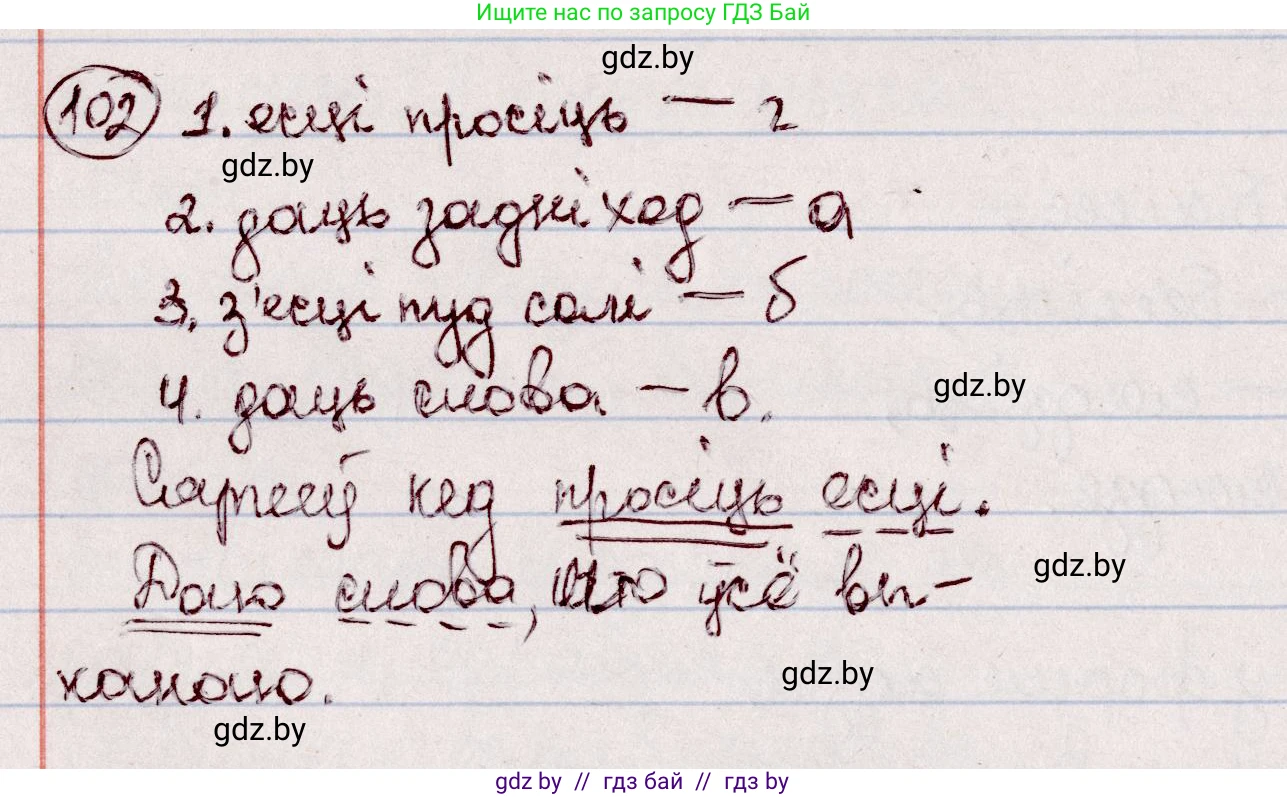 Ищите нас по запросу ГДЗ Бай
gdz.by
102 1. есці просіць — г
gdz.by
2. даць задні ход — а
3. з'есці пуд солі — б
4. даць слова — в.
gdz.by
кед просіць есці.
Даю слова, што ўсё вы-
gdz.by
канаю.
gdz.by
gdz.by
gdz.by // гдз бай // гдз by